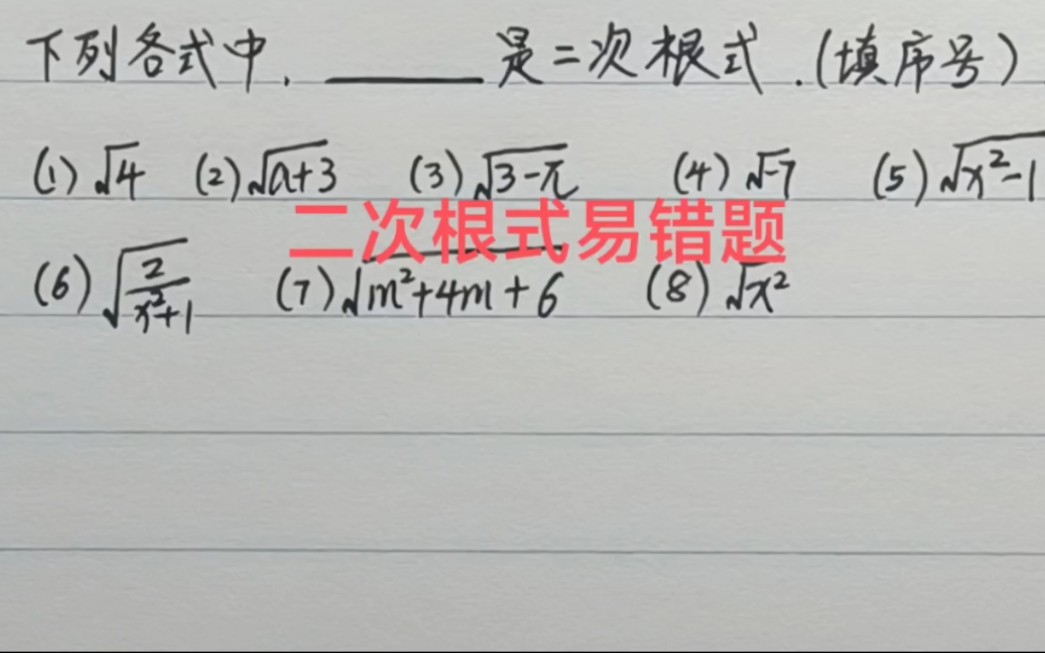 下列各式中, ______ 是二次根式.(填序号)
(1) √4 (2) √a+3 (3) √3-π (4) √-7 (5) √x²-1
二次根式易错题
(6) √2/x²+1 (7) √m²+4m+6 (8) √x²